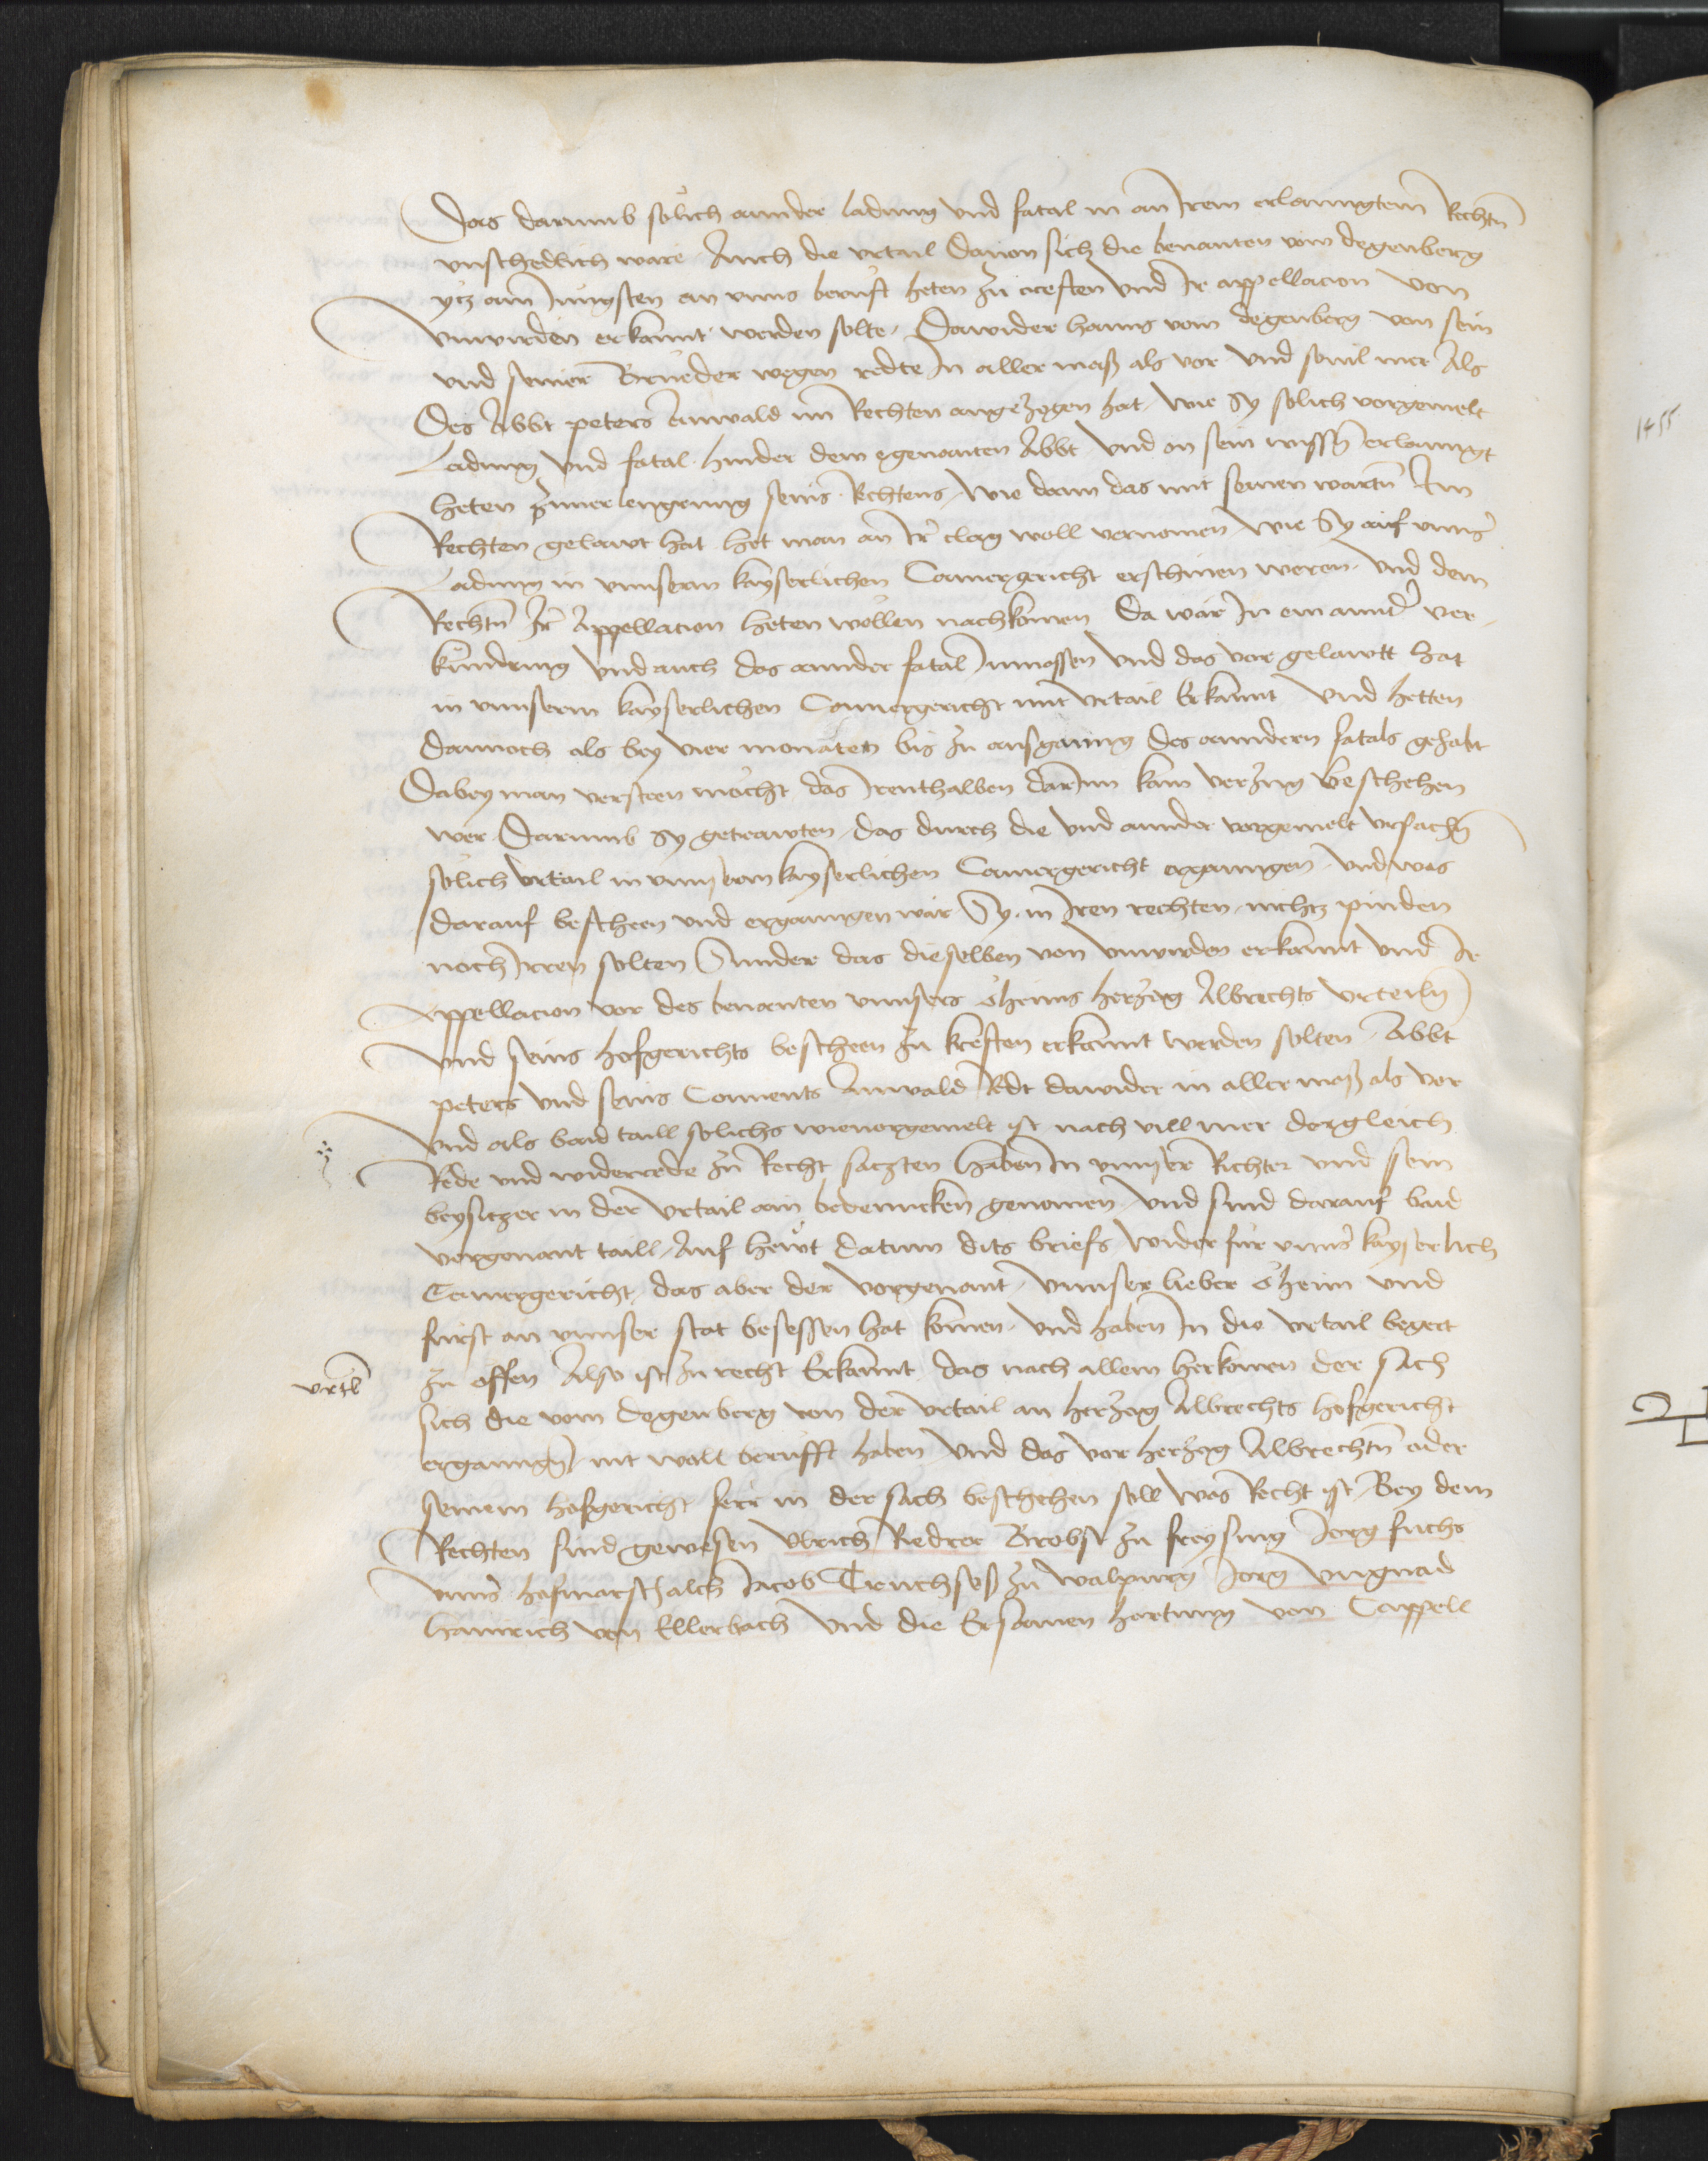 das darumb solich annder ladung vnd fatal in an Irem erlanngtem Rechtn
vnschedlich ware Auch die vrtail dauon sich die benanten vom degenberg
ytz am Jungsten an vnns berufft heten zu creften vnd Ir appellacion von
vnwirden erkannt werden solte, Dawider hanns vom degenberg von sein
vnd seiner Brueder wegen redte In aller mass als vor vnd souil mer Als
Des Abbt peters Anwald im Rechten angezogen hat, wie Sy solich vorgemelt
Ladung vnd fatal hinder dem egenanten Abbt vnd on sein wissn erlanngt
heten zuuerlengrung seins Rechtens, wie dann das mit seinen wortn Im
Rechten gelawt hat het man an Ir clag woll vernomen wie Sy auf vnns
Ladung in vnnserm kayserlichen Camergericht erschinen weren vnd dem
Rechtn Ir Appellacion heten wollen nachkomen Da wär In ein annder ver-
kündung vnd auch das annder fatal Inmassen vnd das vor gelawtt hat
in vnnserm kayserlichen Camergericht mit vrtail Erkannt vnd hetten
dannoch als bey vier monaten bis zu ausganng des anndern fatals gehabt
Dabey man versteen mocht das Irenthalben darInn kain verzug Beschehen
wer Darumb Sy getrawten, das durch die vnd annder vorgemelt vrsachn
solich vrtail in vnnserm kayserlichen Camergericht erganngen vnd was
darauf bescheen vnd erganngen wär Sy in Iren rechten nichtz pinden
noch Irren solten Sunder das dieselben von vnwirden erkannt vnd Ir
Appellacion vor des benanten vnnsers öheims herzog Albrechts vrteiln
vnd seins hofgerichts bescheen zu kreften erkannt werden solten Abbt
peters vnd seins Conuents Anwald Redt dawider in aller mass als vor
vnd als baid taill solichs wieuorgemelt ist nach vill mer dergleich
Rede vnd widerrede zu Recht satzten Haben In vnnser Richter vnd sein
beysitzer in der vrtail ain bedenncken genomen vnd sind darauf baid
vorgenant taill, Auf hewt datum dits briefs wider für vnns kayserlich
Camergericht das aber der vorgenant vnnser lieber öheim vnd
fürst an vnnser stat besessen hat komen vnd haben In die vrtail begert
vrtl zu offen Also ist zu recht Erkannt das nach allem herkomen der sach
sich die vom degenberg von der vrtail an herzog Albrechts hofgericht
erganngn nit woll berufft haben vnd das vor herzog Albrechtn oder
seinem hofgericht ferr in der sach beschehen soll was Recht ist Bey dem
Rechten sind gewesen Vlrich Riedrer Brobst zu freysing Jorg fuchs
vnns hofmarschalch Jacob Truchsess zu walpurg Jorg vngnad
Hainrich von Ellerbach vnd die Ersamen hartung von Cappell
1455